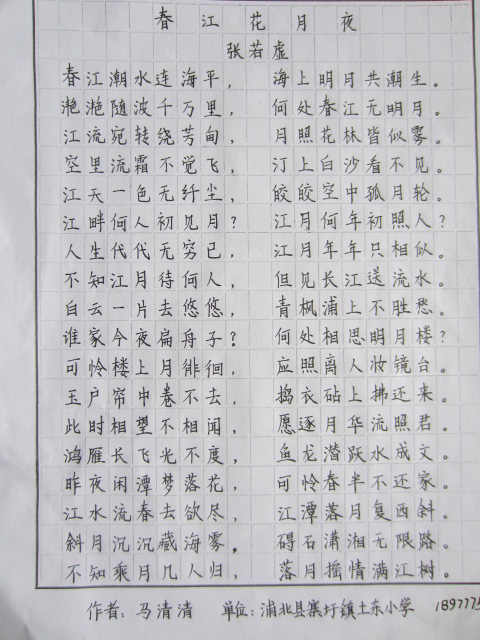 春江花月夜
张若虚
春江潮水连海平，海上明月共潮生。
滟滟随波千万里，何处春江无明月。
江流宛转绕芳甸，月照花林皆似雾。
空里流霜不觉飞，汀上白沙看不见。
江天一色无纤尘，皎皎空中孤月轮。
江畔何人初见月？江月何年初照人？
人生代代无穷已，江月年年只相似。
不知江月待何人，但见长江送流水。
白云一片去悠悠，青枫浦上不胜愁。
谁家今夜扁舟子？何处相思明月楼？
可怜楼上月徘徊，应照离人妆镜台。
玉户帘中卷不去，捣衣砧上拂还来。
此时相望不相闻，愿逐月华流照君。
鸿雁长飞光不度，鱼龙潜跃水成文。
昨夜闲潭梦落花，可怜春半不还家。
江水流春去欲尽，江潭落月复西斜。
斜月沉沉藏海雾，碣石潇湘无限路。
不知乘月几人归，落月摇情满江树。
作者：马清清 单位：浦北县寨圩镇土东小学 1897775